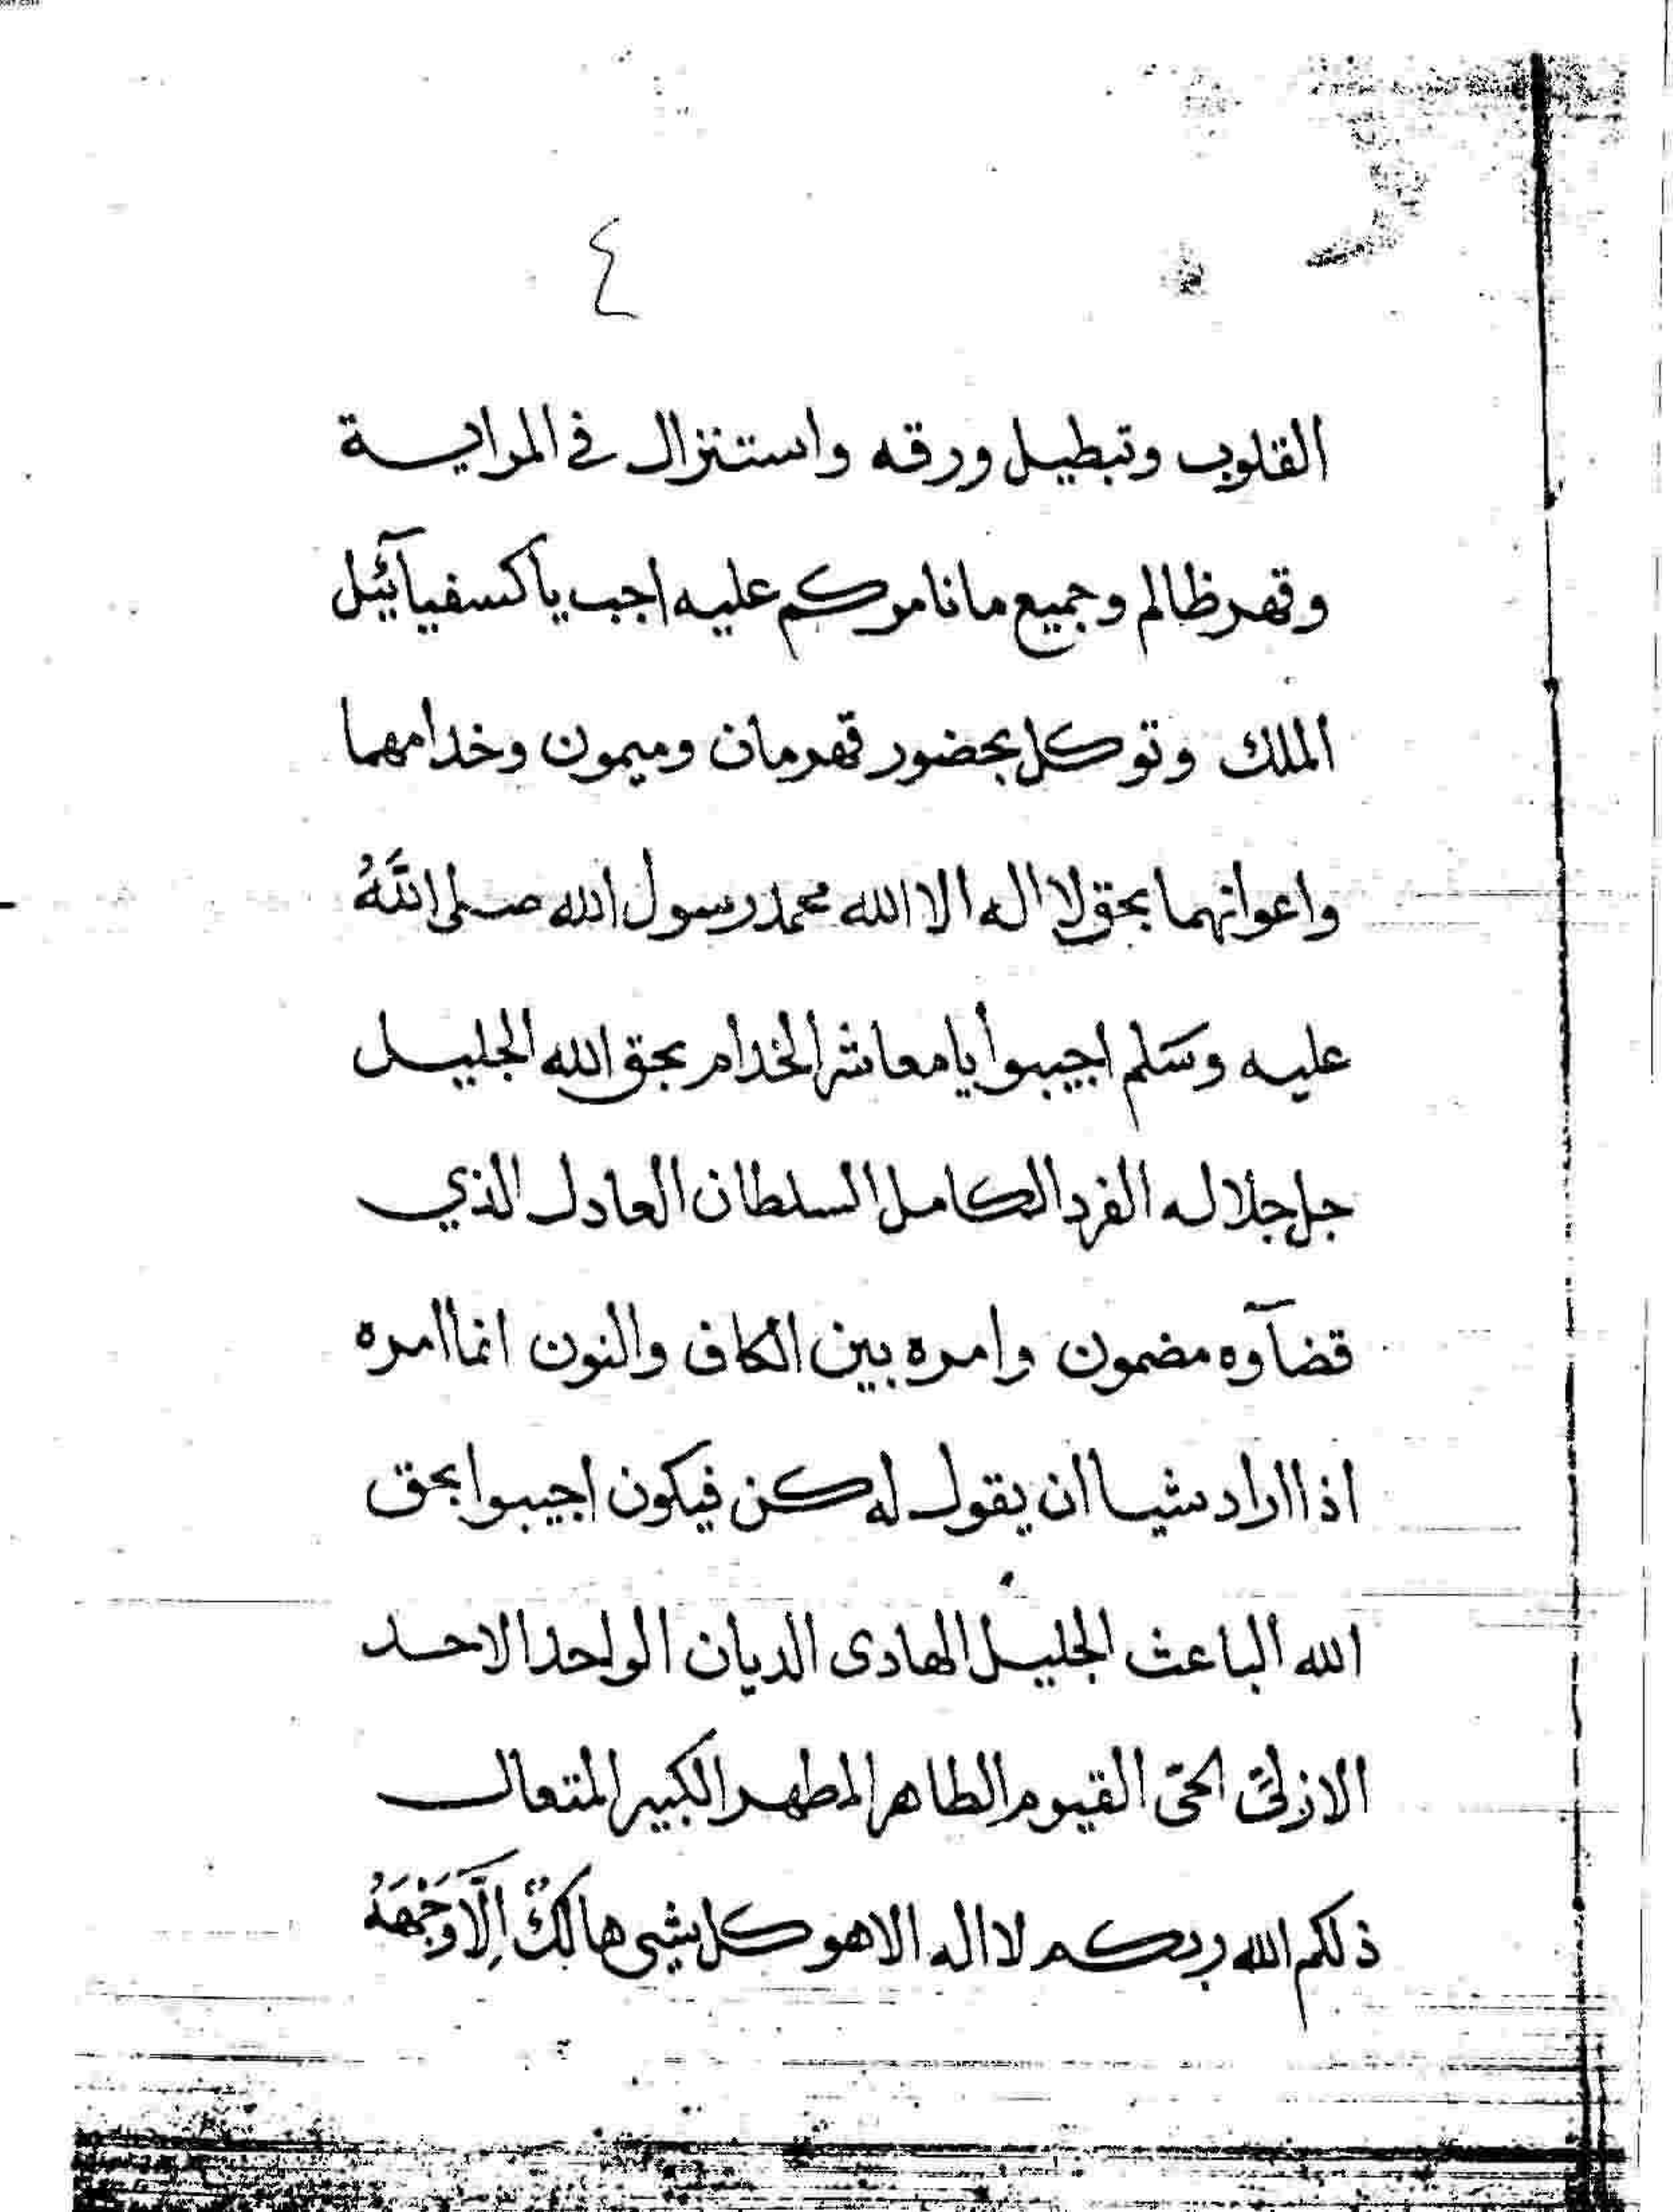 ٤
القلوب وتبطيل ورقه واستنزال في المراية
وقهر ظالم وجميع ما نامركم عليه اجب يا كسفيائيل
الملك وتوكل بحضور قهرمان وميمون وخدامهما
واعوانهما بحق لا اله الا الله محمد رسول الله صلى اللَّهُ
عليه وسَلم اجيبوا يا معاشر الخدام بحق الله الجليل
جل جلاله الفرد الكامل السلطان العادل الذي
قضآوه مضمون وامره بين الكاف والنون انما امره
اذا اراد شيا ان يقول له كن فيكون اجيبوا بحق
الله الباعث الجليل الهادى الديان الواحد الاحد
الازلىّ الحىّ القيوم الطاهر المطهر الكبير المتعال
ذلكم الله ربكم لا اله الا هو كل شيى هالكٌ اِلَّا وَجْهَهُ